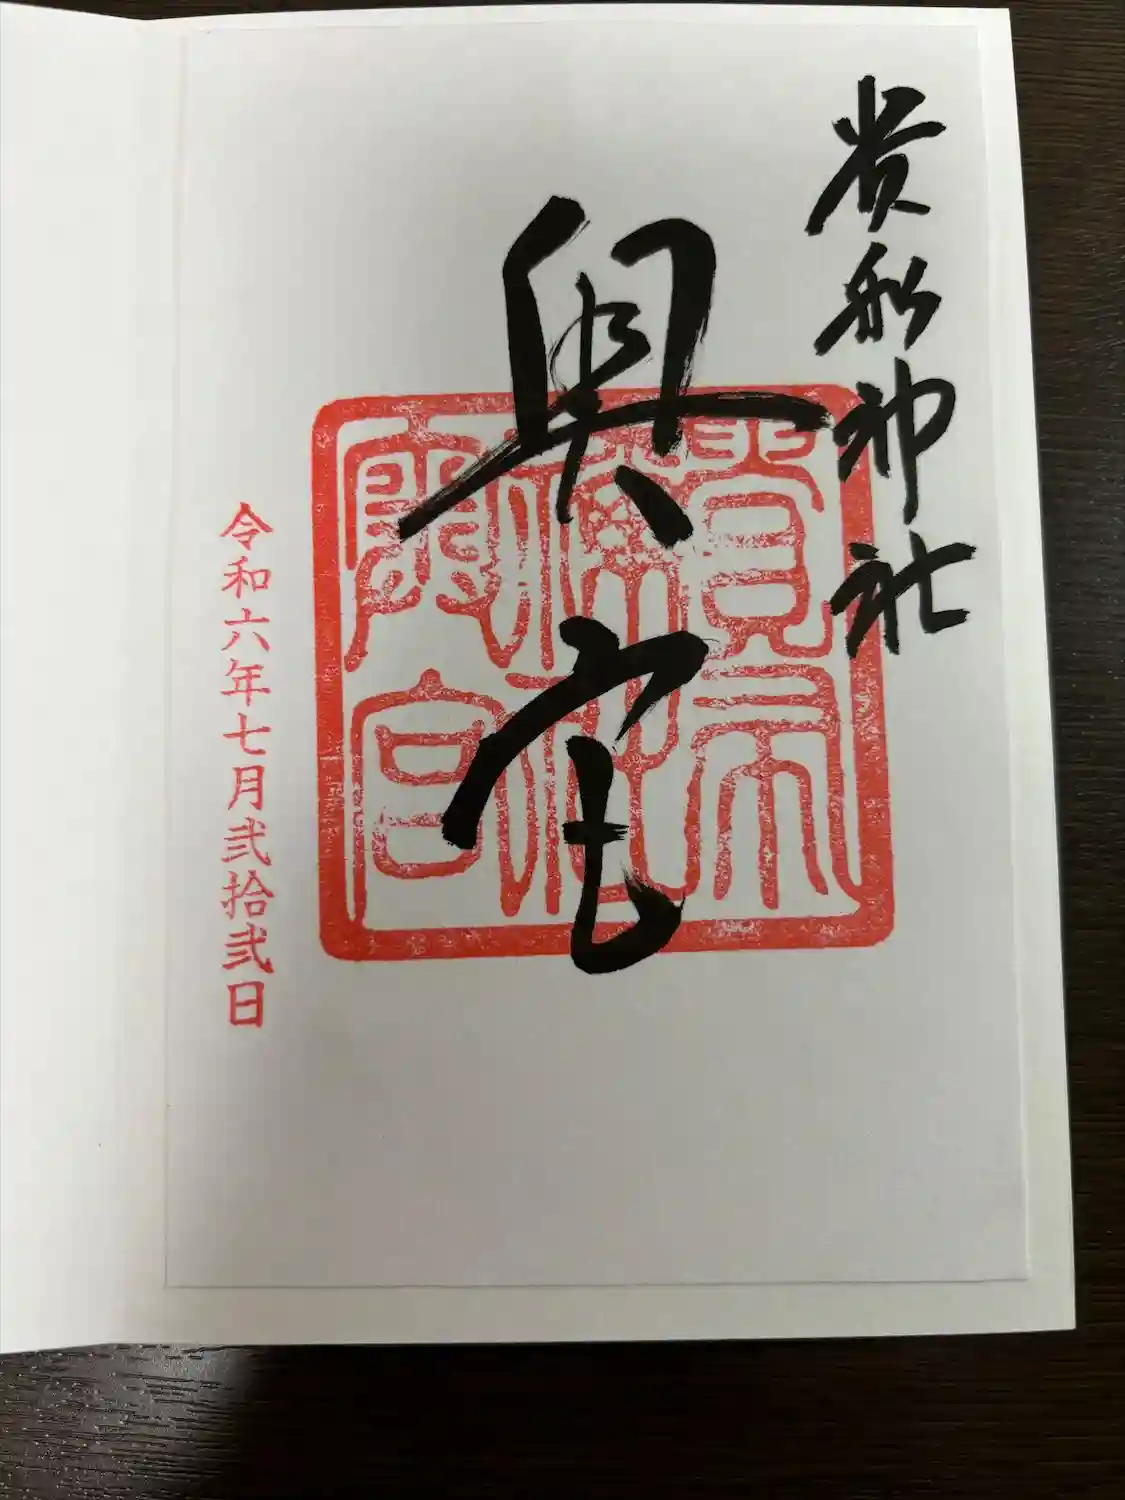 貴船神社
奥宮
貴布
禰社
奥宮
令和六年七月弐拾弐日